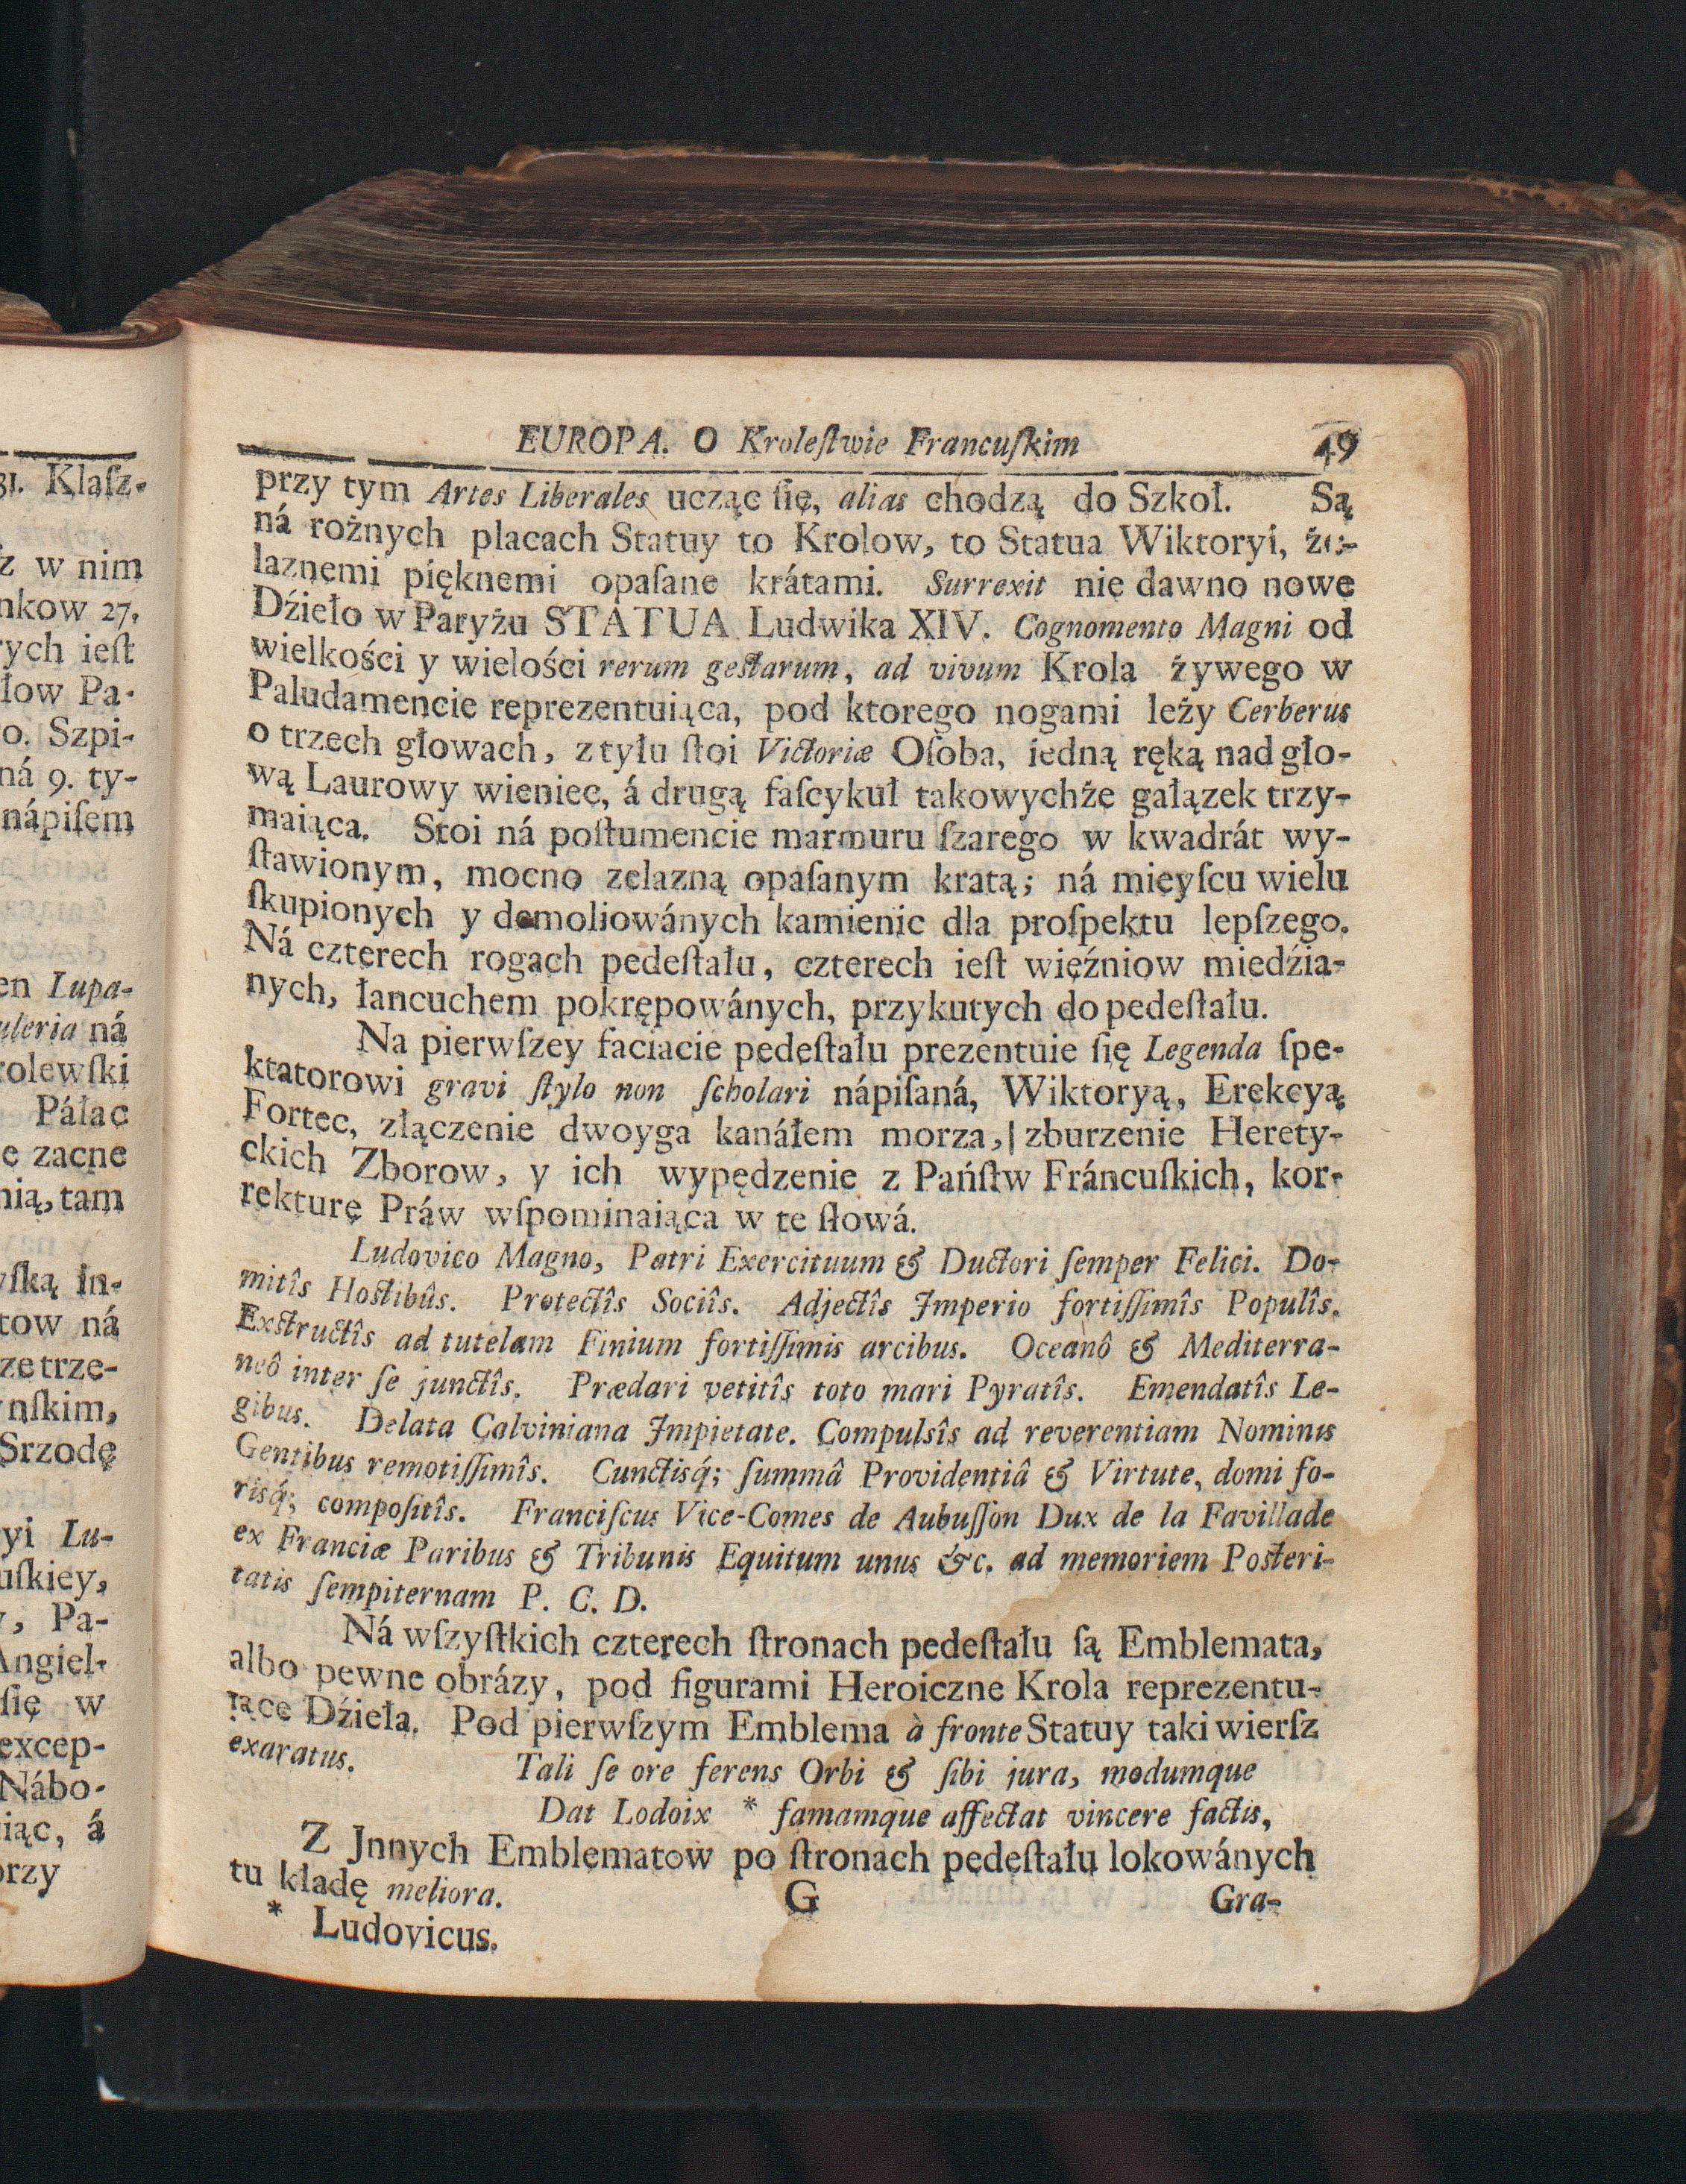 EUROPA. O Kroleſtwie Francuſkim 49
przy tym Artes Liberales ucząc ſię, alias chodzą do Szkoł. Są
ná rożnych placach Statuy to Krolow, to Statua Wiktoryi, że-
laznemi pięknemi opaſane krátami. Surrexit nie dawno nowe
Dźieło w Paryżu STATUA Ludwika XIV. Cognomento Magni od
wielkości y wielości rerum geſtarum, ad vivum Krola żywego w
Paludamencie reprezentuiąca, pod ktorego nogami leży Cerberus
o trzech głowach, z tyłu ſtoi Victoriæ Oſoba, iedną ręką nad gło-
wą Laurowy wieniec, á drugą faſcykuł takowychże gałązek trzy-
maiąca. Stoi ná poſtumencie marmuru ſzarego w kwadrát wy-
ſtawionym, mocno zelazną opaſanym kratą; ná mieyſcu wielu
ſkupionych y demoliowánych kamienic dla proſpektu lepſzego.
Ná czterech rogach pedeſtału, czterech ieſt więźniow miedźia-
nych, łancuchem pokrępowánych, przykutych do pedeſtału.
Na pierwſzey faciacie pedeſtału prezentuie ſię Legenda ſpe-
ktatorowi gravi ſtylo non ſcholari nápiſaná, Wiktoryą, Erekcyą
Fortec, złączenie dwoyga kanáłem morza,| zburzenie Herety-
ckich Zborow, y ich wypędzenie z Pańſtw Fráncuſkich, kor-
rekturę Práw wſpominaiąca w te ſłowá.
Ludovico Magno, Patri Exercituum & Ductori ſemper Felici. Do-
mitîs Hoſtibûs. Protectîs Sociîs. Adjectîs Jmperio fortiſſimîs Populîs.
Exſtructîs ad tutelam Finium fortiſſimis arcibus. Oceanô & Mediterra-
neô inter ſe junctîs. Prædari vetitîs toto mari Pyratîs. Emendatîs Le-
gibus. Delata Calviniana Jmpietate. Compulsîs ad reverentiam Nominis
Gentibus remotiſſimîs. Cunctisq́; ſummâ Providentiâ & Virtute, domi fo-
risq́; compoſitîs. Franciſcus Vice-Comes de Aubuſſon Dux de la Favillade
ex Franciæ Paribus & Tribunis Equitum unus &c. ad memoriem Poſteri-
tatis ſempiternam P. C. D.
Ná wſzyſtkich czterech ſtronach pedeſtału ſą Emblemata,
albo pewne obrázy, pod figurami Heroiczne Krola reprezentu-
iące Dźieła. Pod pierwſzym Emblema à fronte Statuy taki wierſz
exaratus. Tali ſe ore ferens Orbi & ſibi jura, modumque
Dat Lodoix * famamque affectat vincere factis,
Z Jnnych Emblematow po ſtronach pedeſtału lokowánych
tu kładę meliora. G Gra-
* Ludovicus.
31. Klaſz-
z w nim
nkow 27.
rych ieſt
łow Pa-
o. Szpi-
ná 9. ty-
nápiſem
en Lupa-
uleria ná
rolewſki
Páłac
e zacne
nią, tam
wſką in-
tow ná
ze trze-
nſkim,
Srzodę
yi Lu-
uſkiey,
, Pa-
Angiel-
ſię w
excep-
Nábo-
iąc, á
orzy